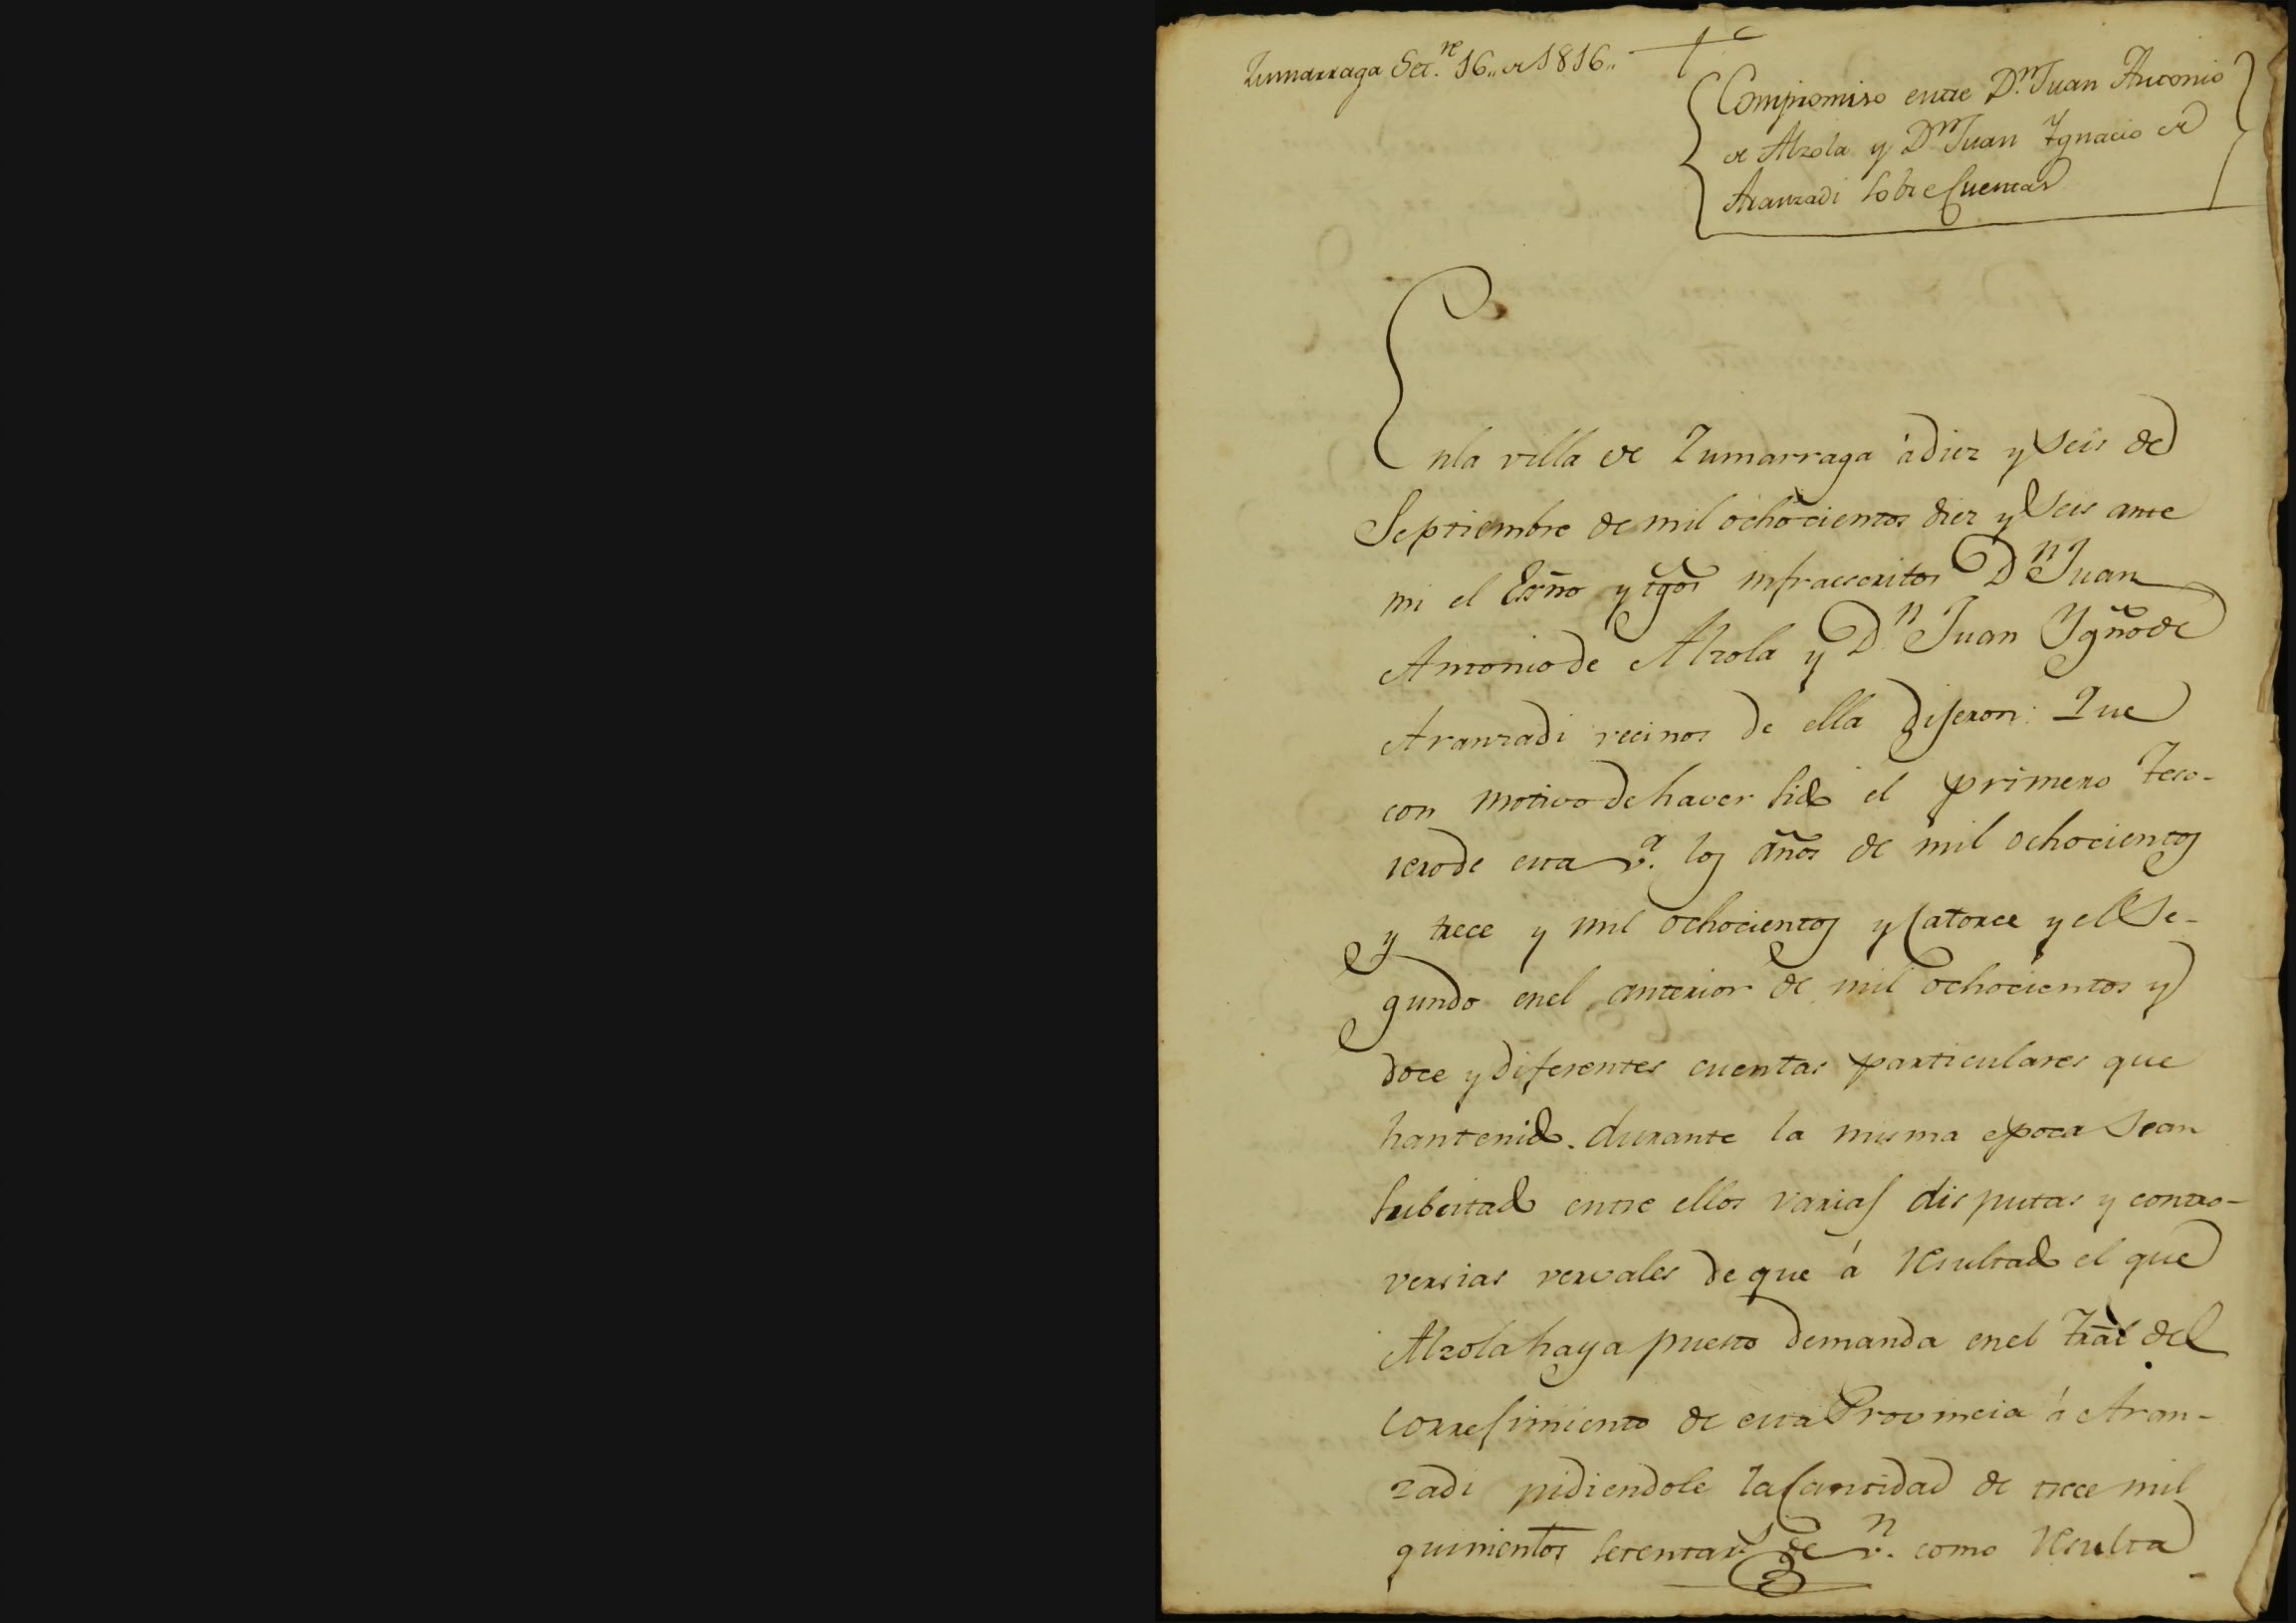 Zumarraga Set.re 16,, de 1816,,
Compromiso entre D.n Juan Antonio
de Alzola y D.n Juan Ygnacio de
Aranzadi sobre Cuentas
Enla villa de Zumarraga á diez y seis de
Septiembre de mil ochocientos diez y seis ante
mi el Esno y tgos infraescritos D.n Juan
Antonio de Alzola y D.n Juan Ygno de
Aranzadi vecinos de ella dijeron: Que
con motivo de haver sido el primero Teso-
rero de esta v.a los años de mil ochocientos
y trece y mil ochocientos y Catorce y el Se-
gundo enel anterior de mil ochocientos y
doce y diferentes cuentas particulares que
hantenido durante la misma epoca sean
subcitado entre ellos varias disputas y contro-
versias vervales de que á resultado el que
Alzola haya puesto demanda enel Tral del
Correjimiento de esta Provincia á Aran-
zadi pidiendole la Cantidad de trece mil
quinientos setenta rs de v.n como resulta